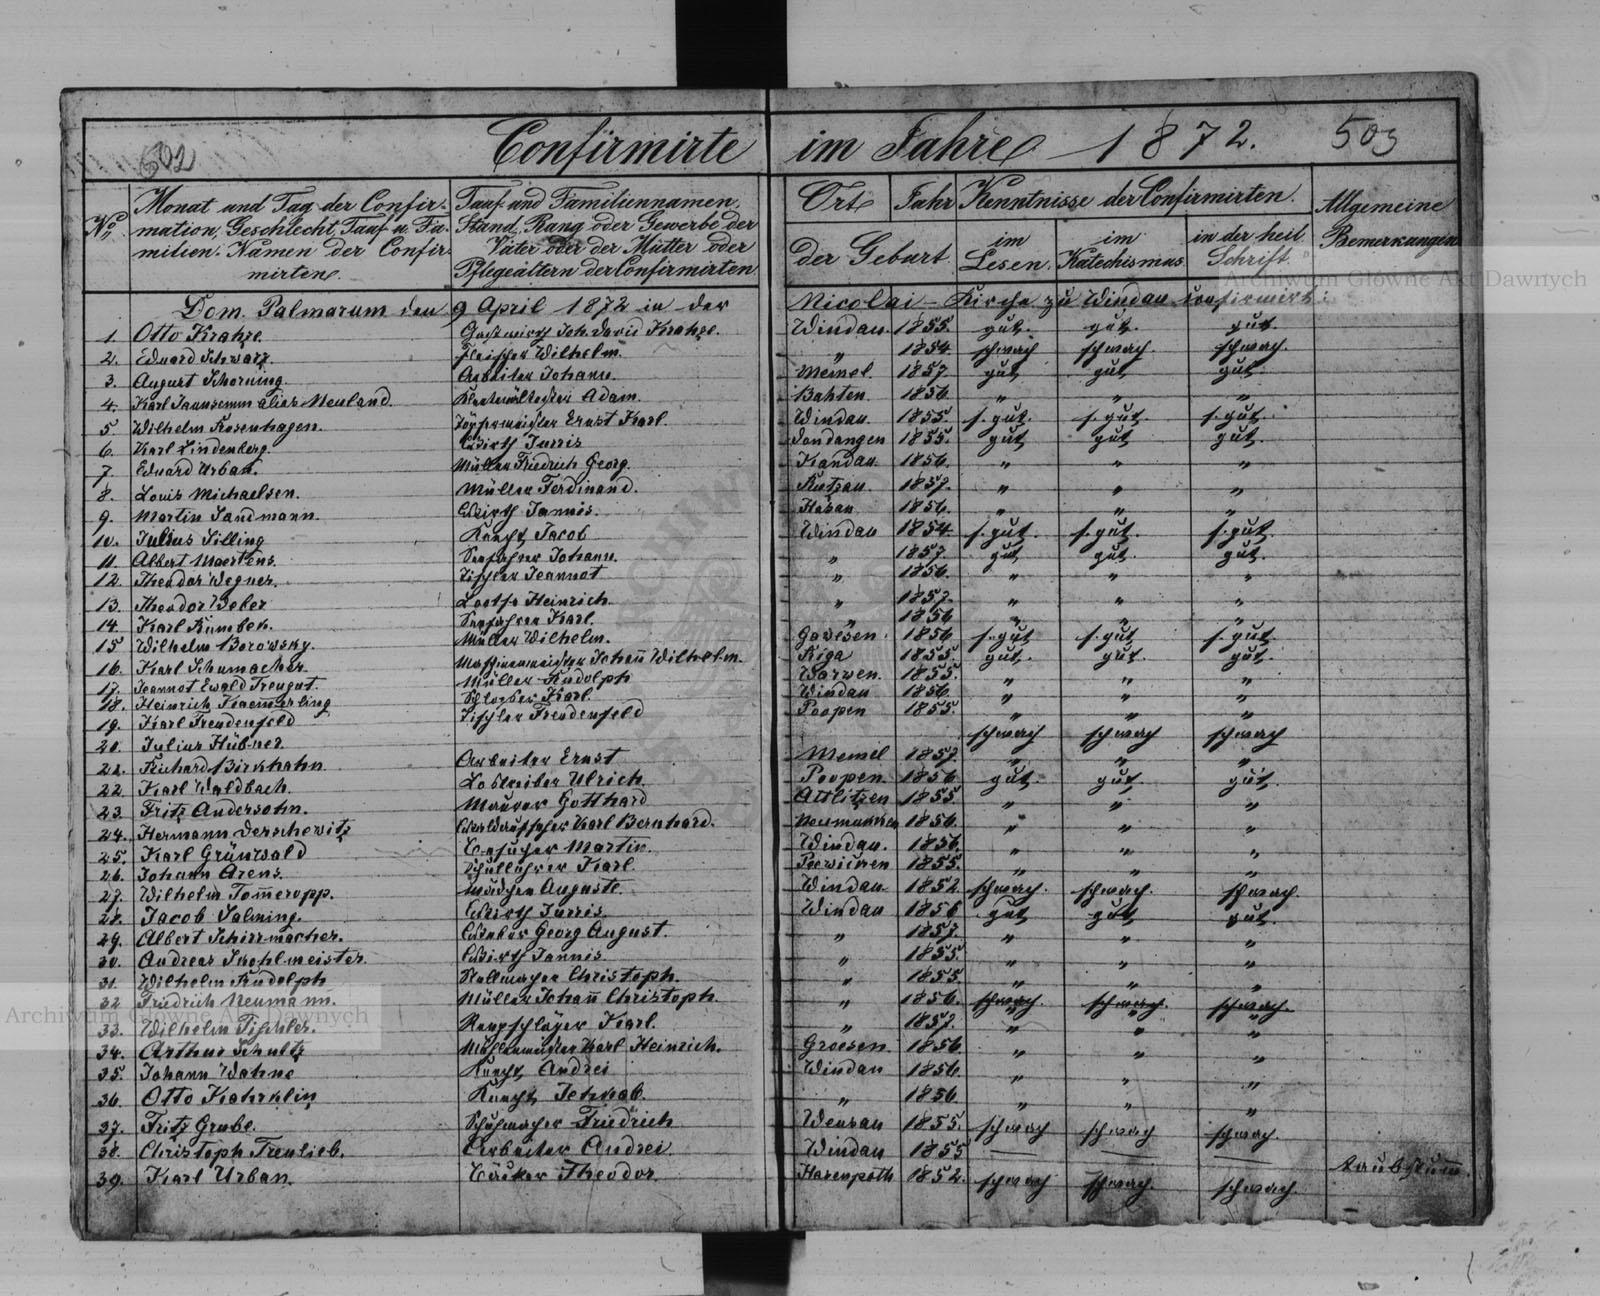 502
Confirmirte im Jahre 1872.
503
No.
Monat und Tag der Confir-
mation, Geschlecht, Tauf u. Fa-
milien-Namen der Confir-
mirten.
Tauf und Familiennamen,
Stand, Rang oder Gewerbe der
Väter oder der Mütter oder
Pflegeältern der Confirmirten
Ort Jahr
der Geburt.
Kenntnisse der Confirmirten.
im
Lesen.
im
Katechismus.
in der heil.
Schrift.
Allgemeine
Bemerkungen
Dom. Palmarum den 9 April 1872 in der Nicolai-Kirche zu Windau confirmirt:
1. Otto Krahze. Joh. David Krahze. Windau. 1855. gut. gut. gut.
2. Eduard Schwarz. Fleischer Wilhelm. " 1854. schwach schwach. schwach.
3. August Schorning. Arbeiter Johann. Memel. 1857. gut gut gut.
4. Karl Jaunsemm alias Neuland. Adam. Bahten. 1856. " " "
5. Wilhelm Rosenhagen. Töpfermeister Ernst Karl. Windau. 1855. s. gut. s. gut. s. gut.
6. Karl Lindenberg. Wirth Jurris Dondangen 1855. gut gut gut.
7. Eduard Urban. Müller Friedrich Georg. Kandau. 1856. " " "
8. Louis Michaelsen. Müller Ferdinand. 1857. " " "
9. Martin Sandmann. Wirth Jannis. Hasau 1856. " " "
10. Julius Silling Knecht Jacob Windau 1854. s. gut. s. gut. s. gut.
11. Albert Maertens. Seefahrer Johann. " 1857. gut gut. gut.
12. Theodor Wegner. Tischler Jeannot " 1856. " " "
13. Theodor Weber Lootse Heinrich. " 1857. " " "
14. Karl Rumbek. Seefahrer Karl. " 1856 " " "
15 Wilhelm Borowsky. Müller Wilhelm. 1856 s. gut s. gut s. gut.
16. Karl Schumacher. Maschinenmeister Johann Wilhelm. Riga 1855. gut. gut. gut.
17. Jeannot Ewald Treugut. Müller Rudolph Warwen. 1855. " " "
18. Heinrich Kaemerling Schlosser Karl. Windau 1856. " " "
19. Karl Freudenfeld Tischler Freudenfeld Poopen 1855. " " "
20. Julius Hübner. schwach schwach schwach
21. Richard Birkhahn Arbeiter Ernst Memel 1857. " " "
22. Karl Waldbach. Lostreiber Ulrich Poopen. 1856 gut gut gut.
23. Fritz Andersohn. Maurer Gotthard 1855. " " "
24. Hermann Derschewitz Waldaufseher Karl Bernhard. 1856. " " "
25. Karl Grünwald Martin. Windau. 1856. " " "
26. Johann Arens. Schullehrer Karl. 1855. " " "
27. Wilhelm Tomeropp. Mädchen Auguste. Windau 1852. schwach. schwach. schwach.
28. Jacob Salming. Wirth Jurris. Windau 1856 gut gut gut.
29. Albert Schirrmacher. Georg August. " 1857. " " "
30. Andreas Strohlmeister. Wirth Jannis. " 1855. " " "
31. Wilhelm Rudolph Stellmacher Christoph. " 1855. " " "
32 Friedrich Neumann. Müller Johann Christoph. " 1856. schwach. schwach. schwach.
33. Wilhelm Tischler. Reepschläger Karl. " 1857. " " "
34. Arthur Schultz Müllermeister Karl Heinrich. Groesen. 1856. " " "
35. Johann Wahne Knecht Andrei Windau 1856. " " "
36. Otto Kahrklin Knecht Jehkab. " 1856. " " "
37. Fritz Grube. Schuhmacher Friedrich Wensau 1855. schwach schwach schwach.
38. Christoph Treulieb. Arbeiter Andrei Windau 1855 — — — taubstumm.
39. Karl Urban. Bäcker Theodor. Hasenpoth 1852. schwach schwach. schwach.
Archiwum Główne Akt Dawnych
Archiwum Główne Akt Dawnych